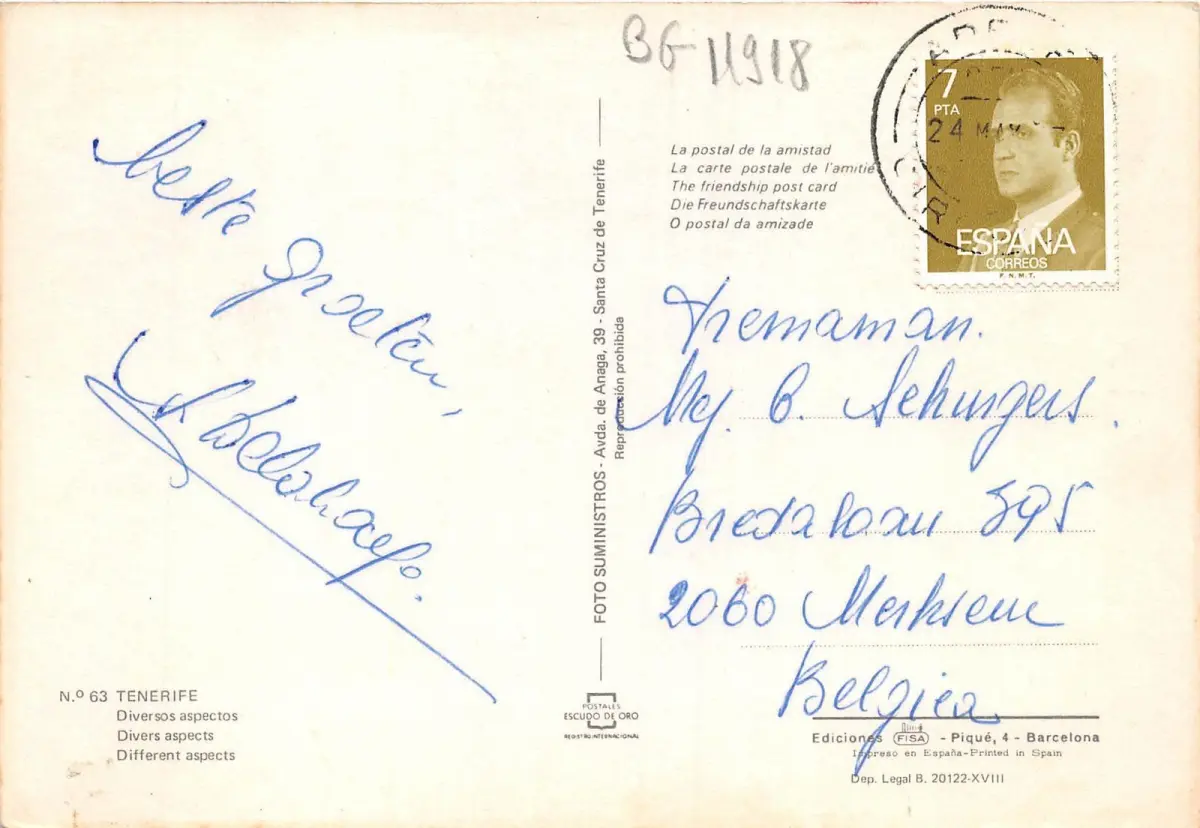 BG 11918
La postal de la amistad
La carte postale de l'amitié
The friendship post card
Die Freundschaftskarte
O postal da amizade
7
PTA
24 MAY
ESPAÑA
CORREOS
F.N.M.T.
beste groeten,
Mej. B. Schurgers.
Bredabaan 595
2060 Merksem
Belgica
FOTO SUMINISTROS - Avda. de Anaga, 39 - Santa Cruz de Tenerife
Reproducción prohibida
N.º 63 TENERIFE
Diversos aspectos
Divers aspects
Different aspects
POSTALES
ESCUDO DE ORO
REGISTRO INTERNACIONAL
Ediciones FISA - Piqué, 4 - Barcelona
Impreso en España-Printed in Spain
Dep. Legal B. 20122-XVIII